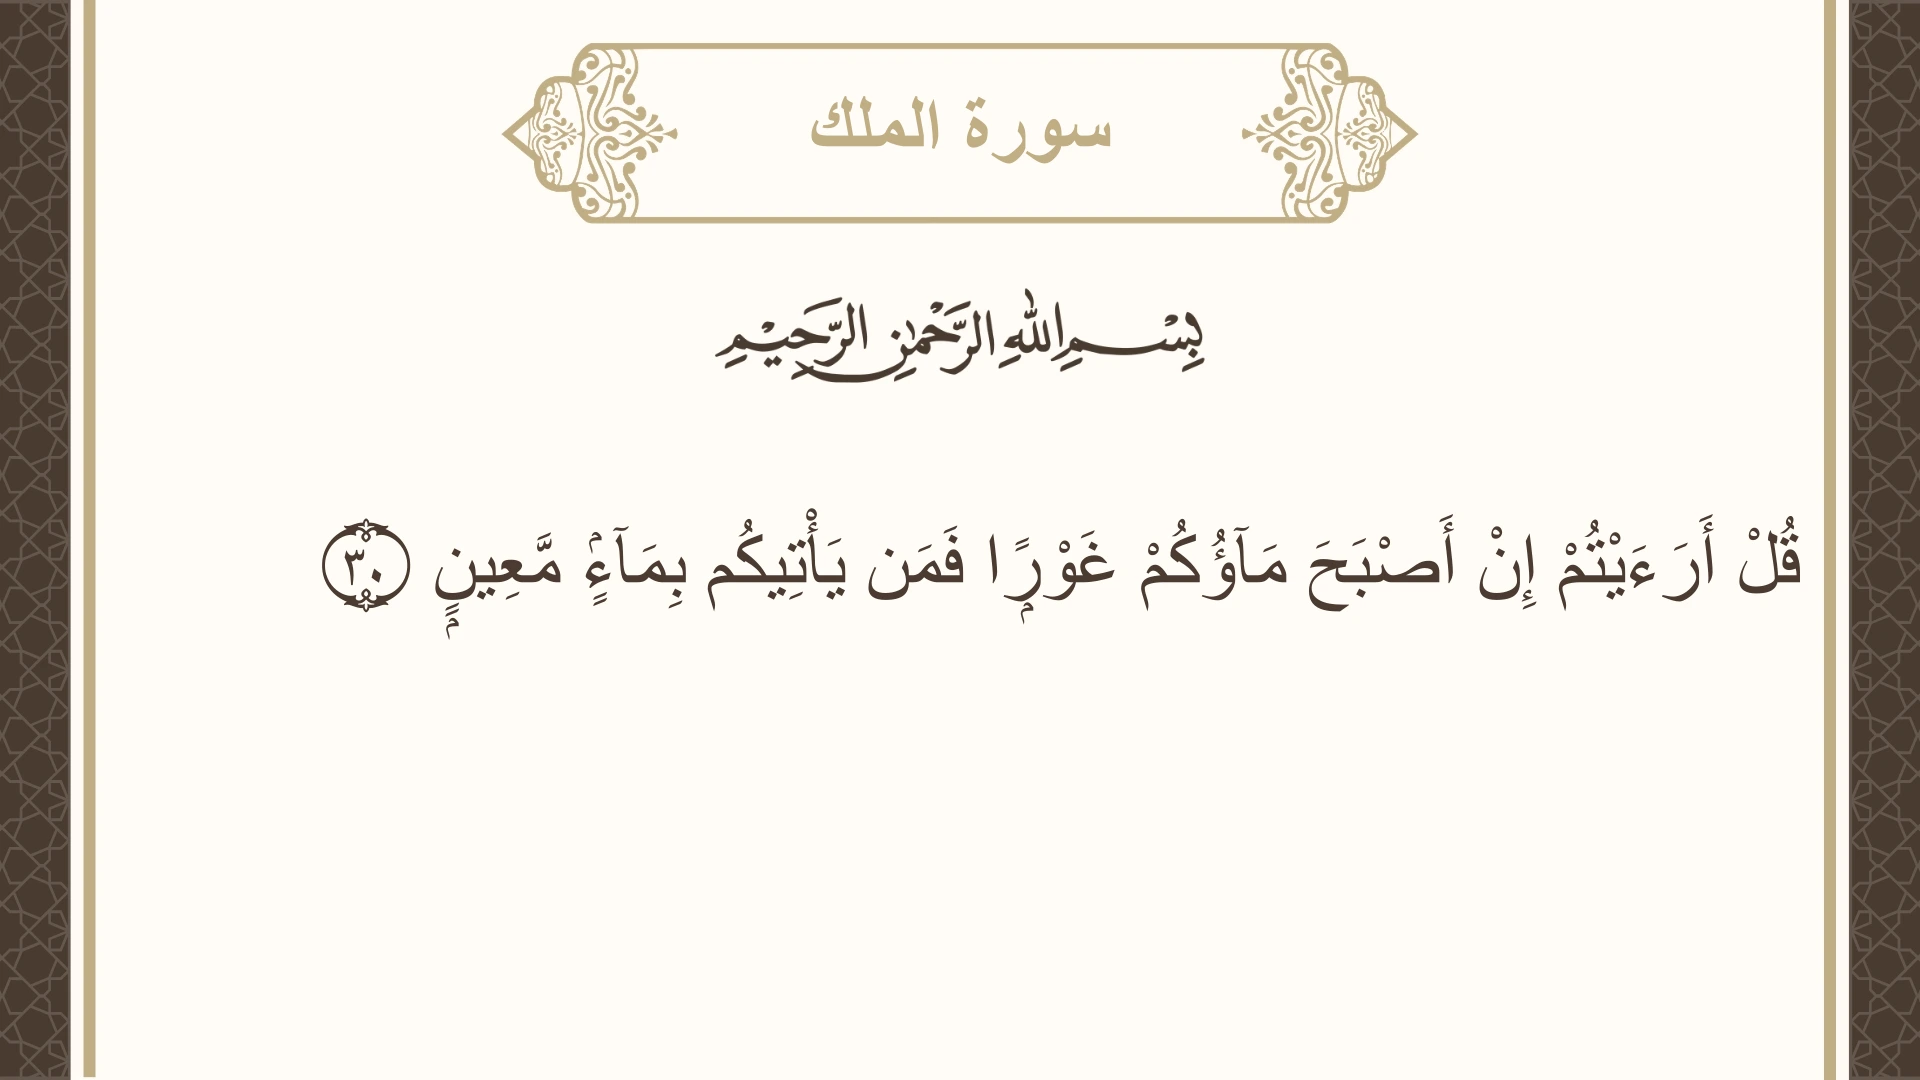 سورة الملك
بِسْمِ اللهِ الرَّحْمٰنِ الرَّحِيْمِ
قُلْ أَرَءَيْتُمْ إِنْ أَصْبَحَ مَآؤُكُمْ غَوْرًۭا فَمَن يَأْتِيكُم بِمَآءٍۢ مَّعِينٍۭ ٣٠